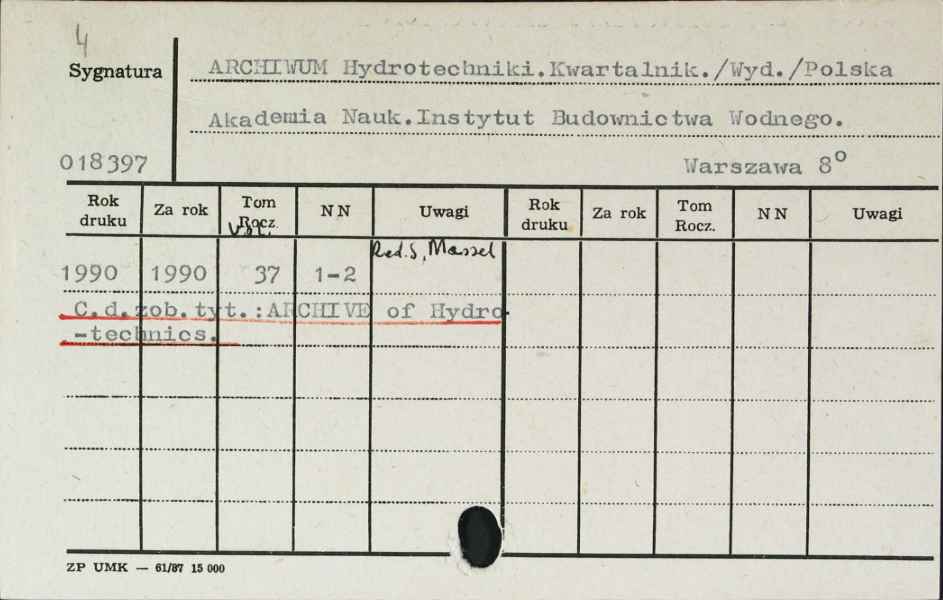 4
Sygnatura
ARCHIWUM Hydrotechniki.Kwartalnik./Wyd./Polska
Akademia Nauk.Instytut Budownictwa Wodnego.
018397
Warszawa 8°
Rok druku Za rok Tom Rocz. NN Uwagi Rok druku Za rok Tom Rocz. NN Uwagi
Vol.
Red. S. Massel
1990 1990 37 1-2
C.d.zob.tyt.:ARCHIVE of Hydro
-technics.
ZP UMK — 61/87 15 000